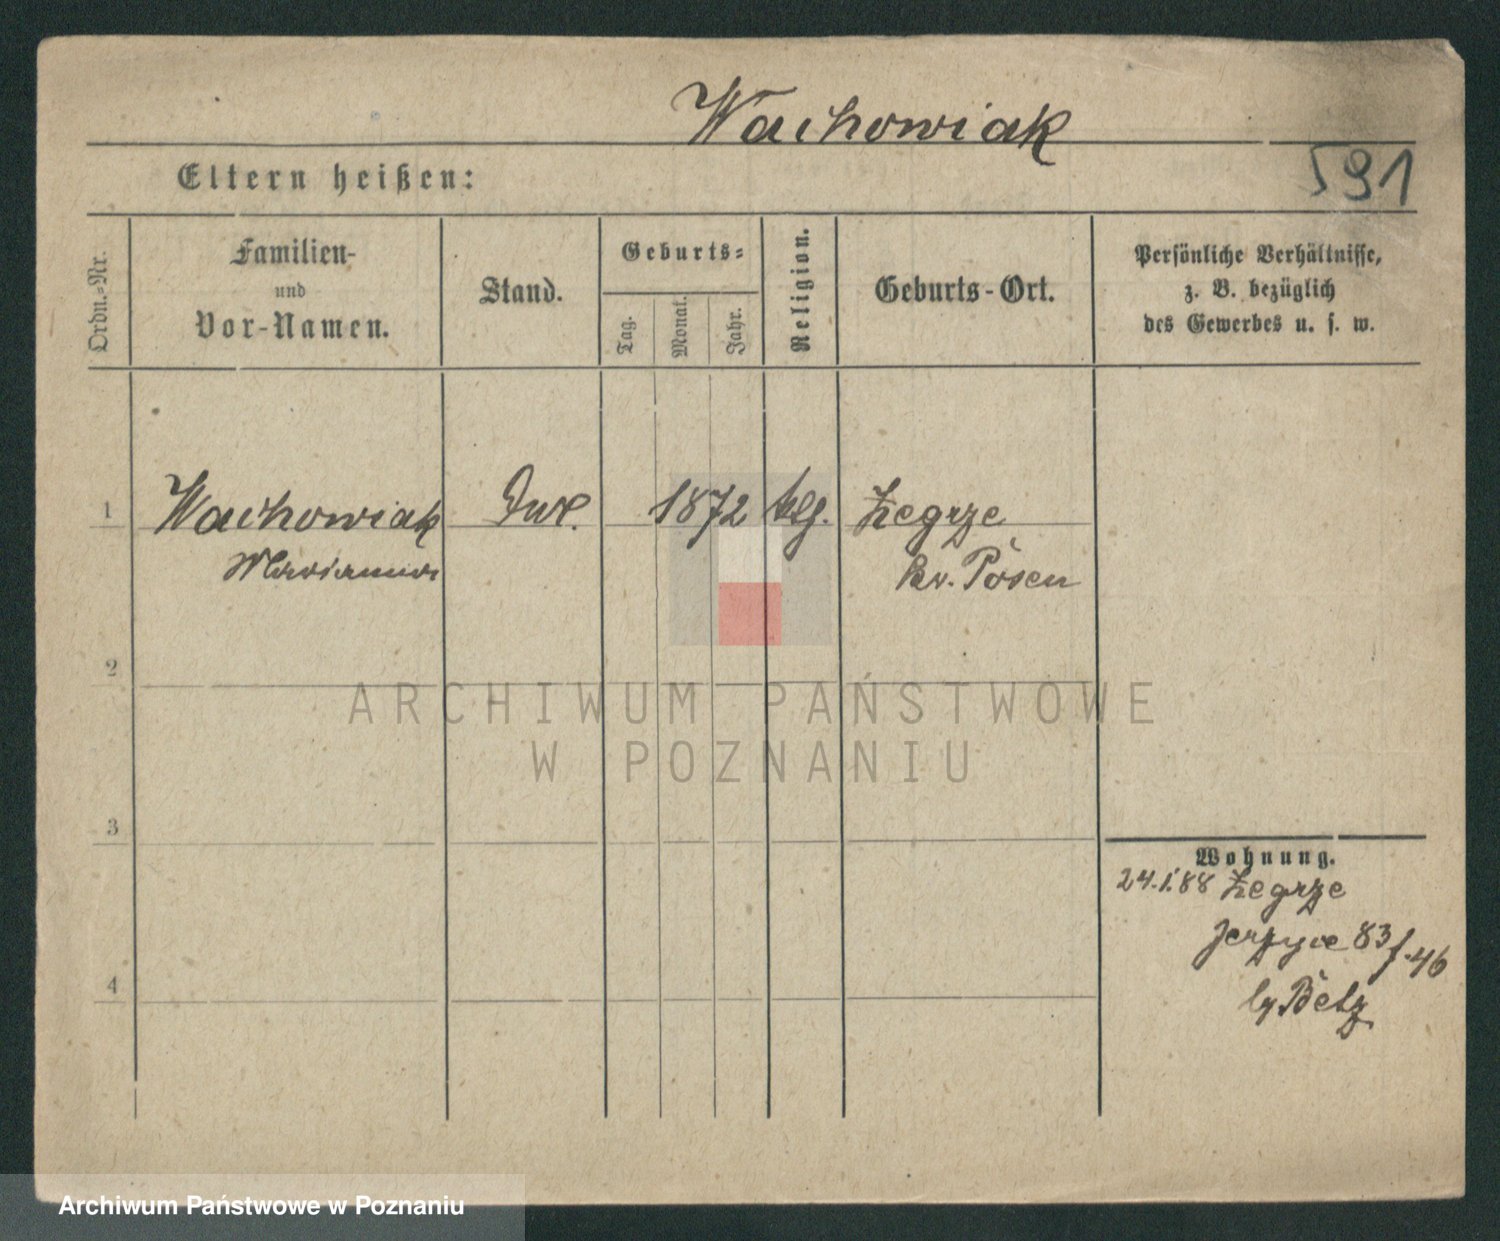 Wachowiak
591
Eltern heißen:
Ordn.-Nr.
Familien-
und
Vor-Namen.
Stand.
Geburts-
Tag.
Monat.
Jahr.
Religion.
Geburts-Ort.
Persönliche Verhältnisse,
z. B. bezüglich
des Gewerbes u. s. w.
1 Wachowiak 1872 Zegrze
Marianna Kr. Posen
2
ARCHIWUM PAŃSTWOWE
W POZNANIU
3
Wohnung.
24.1.88 Zegrze
Jerzyce 83 f. 46
Betz
4
Archiwum Państwowe w Poznaniu